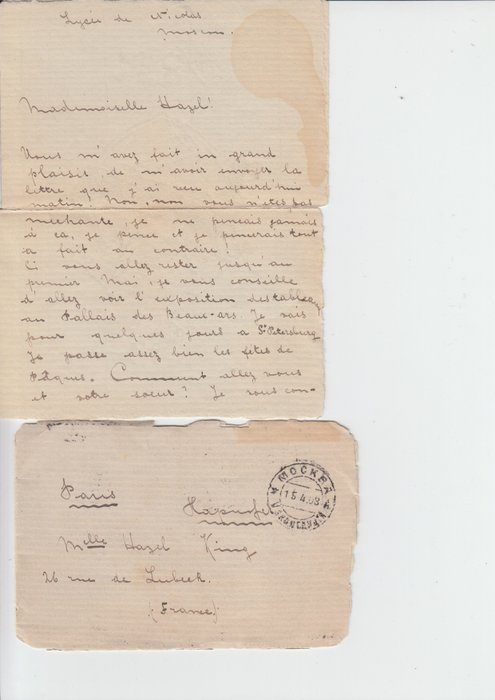 Lycée de Nicolas
Moscou.
Mademoiselle Hazel!
Vous m'avez fait in grand
plaisir, de m'avoir envoyer la
littre que j'ai reçu aujourd'hui
matin! Non, non vous n'etes pas
mechante, je ne pencais jamais
à ça, je pence et je pencerais tout
a fait au contraire!
Ci vous allez rester jusqu'au
premier Mai, je vous conseille
d'allez voir l'exposition des tableau
au Pallais des Beaux-ars. Je vais
pour quelques jours a St Petersburg
Je passe assez bien les fêtes de
Pâques. Comment allez vous
et votre soeur? Je vous con-
МОСКВА
15.4.08
Paris
Melle Hazel King
26 rue de Lubeck.
(France)